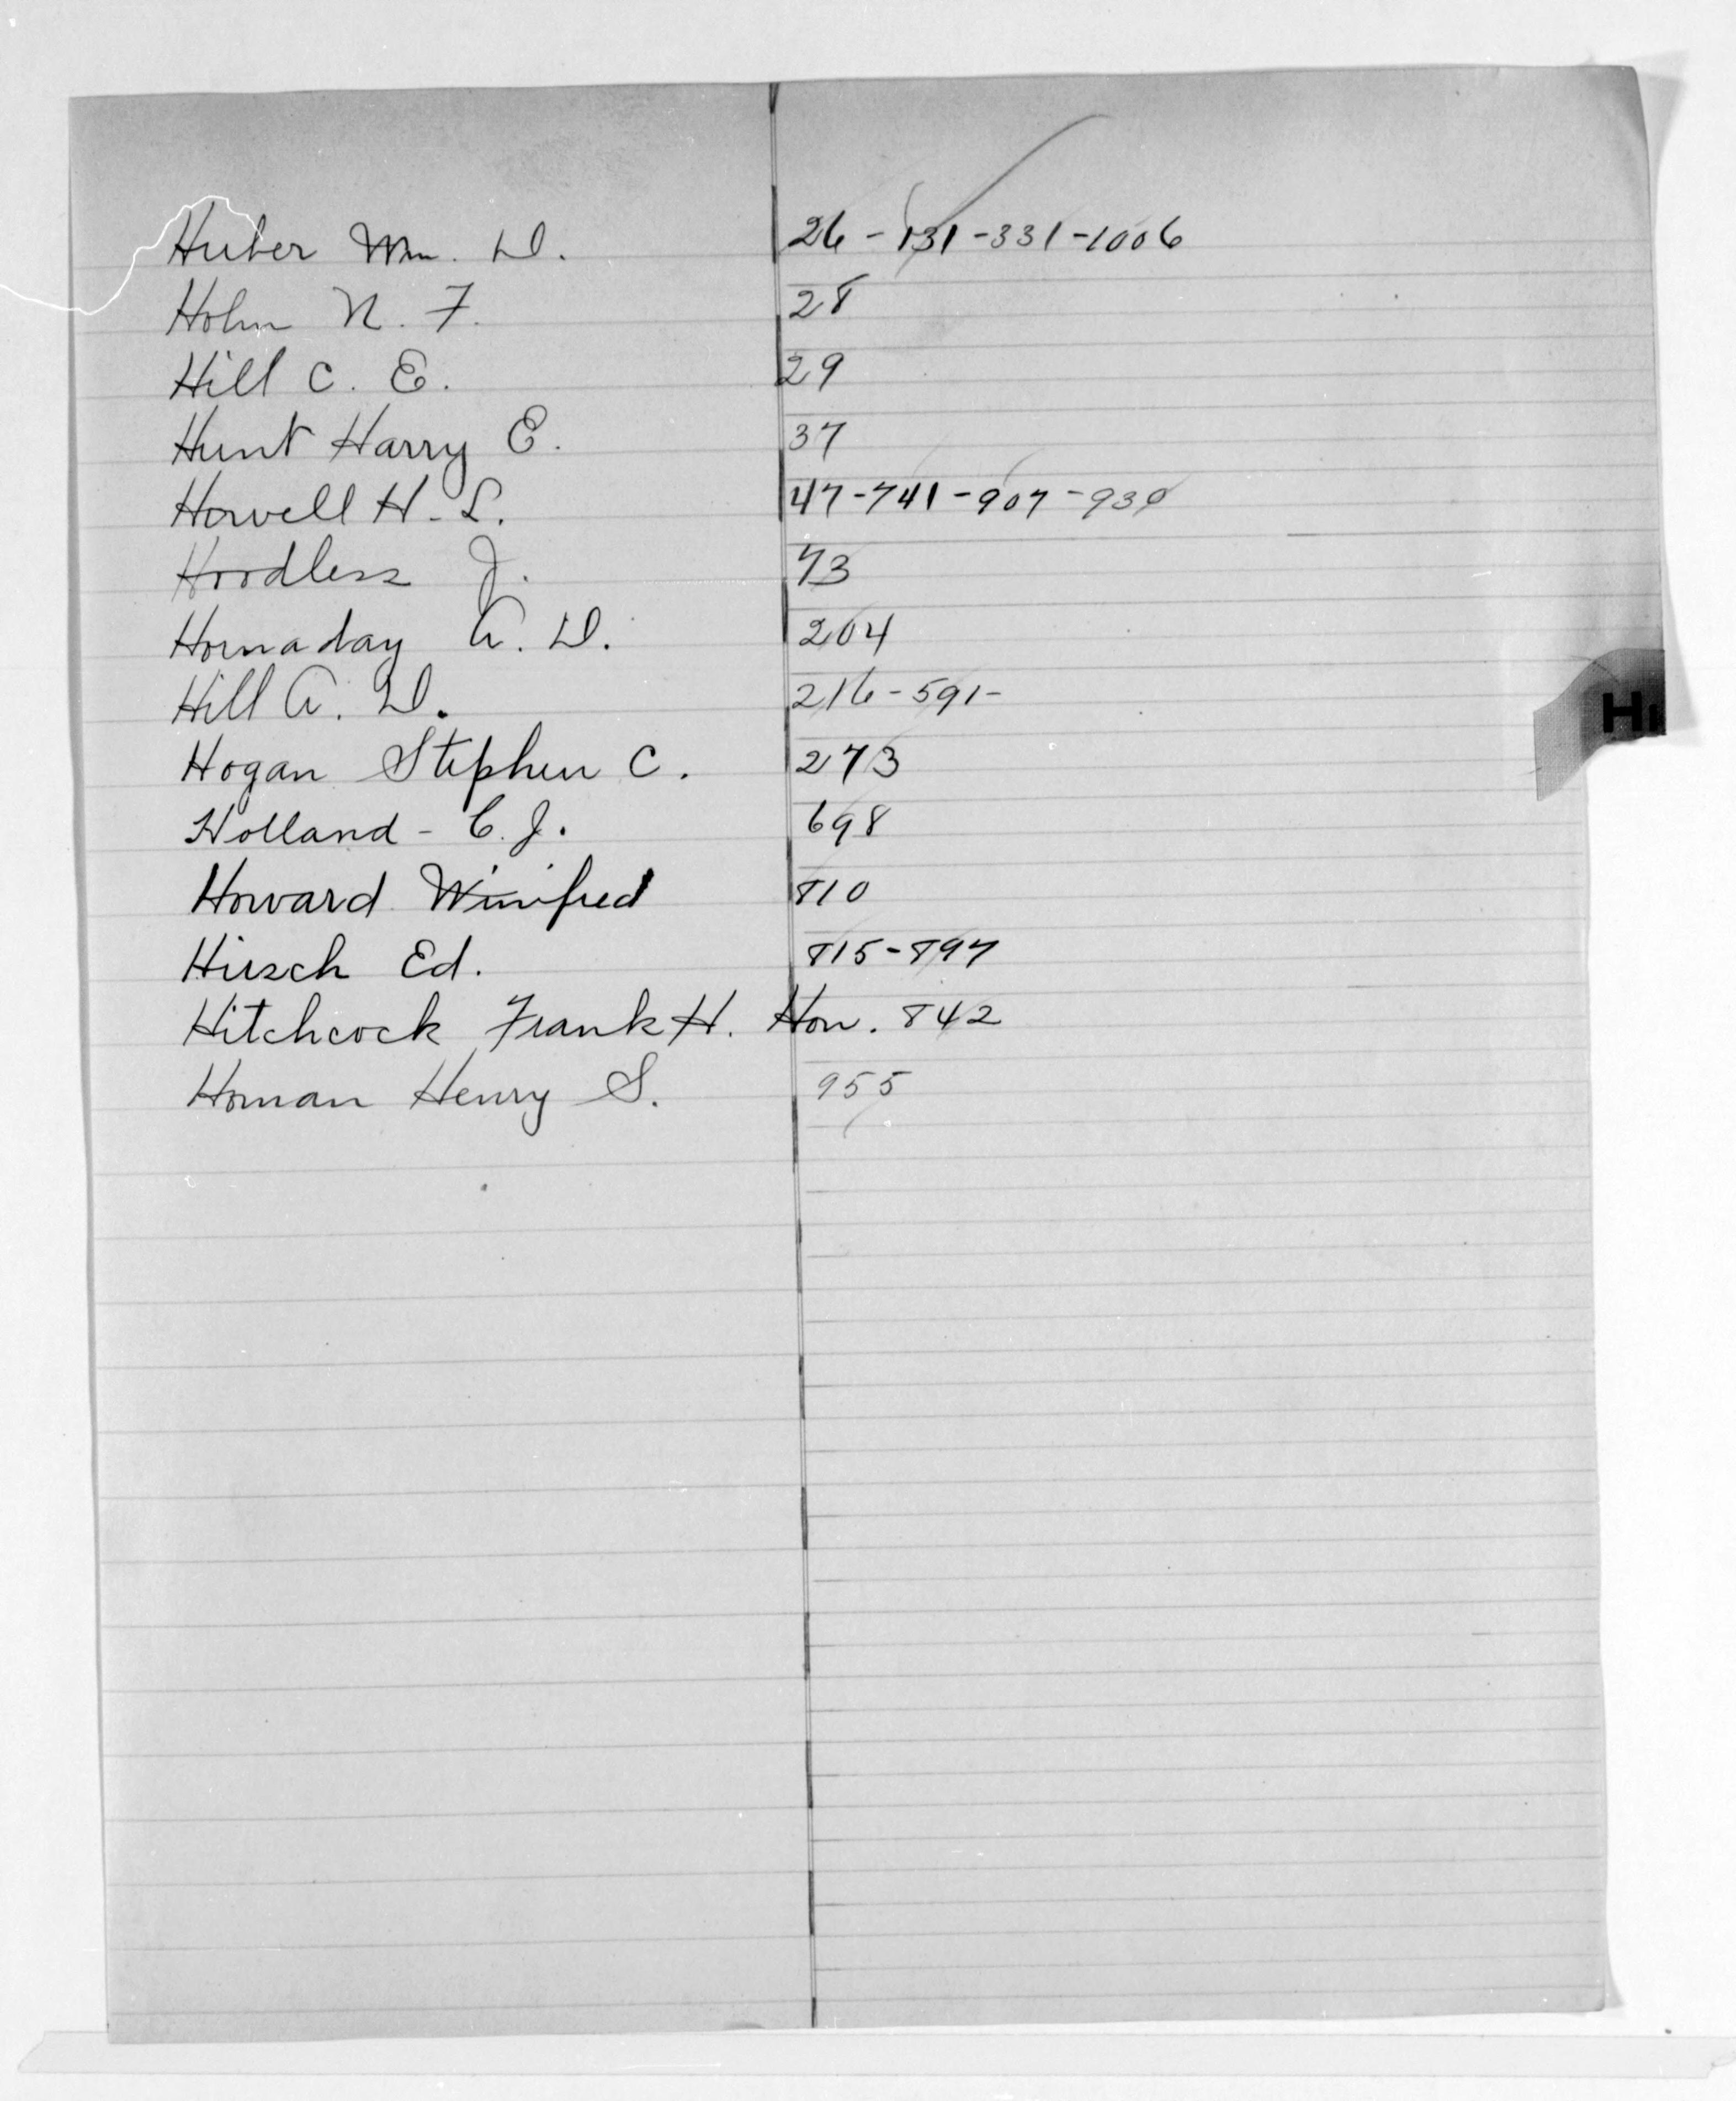 Huber Wm. D. 26-131-331-1006
Holm N. F. 28
Hill C. E. 29
Hunt Harry E. 37
Howell H. L. 47-741-907-939
Hoodless J. 73
Hornaday A. D. 204
Hill A. D. 216-591-
Hogan Stephen C. 273
Holland - C. J. 698
Howard Winifred 810
Hirsch Ed. 815-897
Hitchcock Frank H. Hon. 842
Homan Henry S. 955
Hi